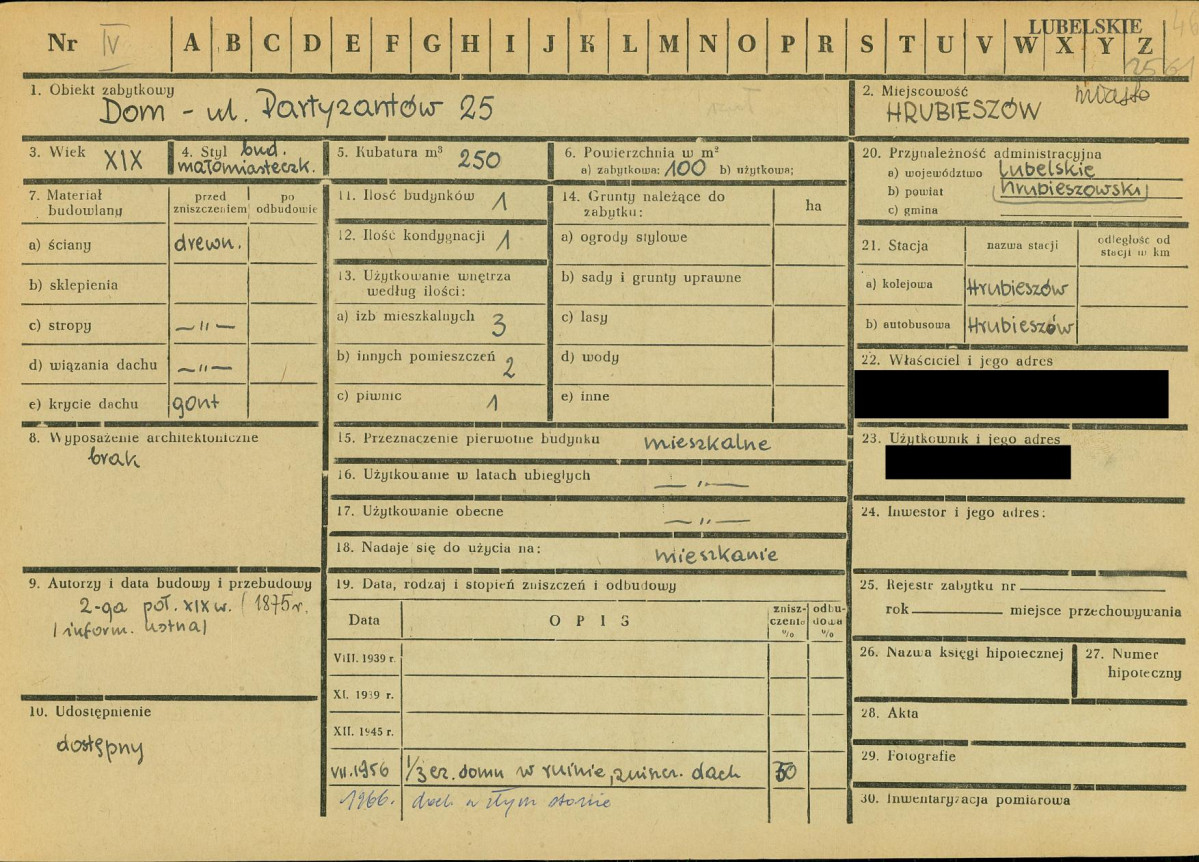 LUBELSKIE
Nr IV A B C D E F G H I J K L M N O P R S T U V W X Y Z
2561
1. Obiekt zabytkowy
Dom - ul. Partyzantów 25
2. Miejscowość miasto
HRUBIESZÓW
3. Wiek XIX
4. Styl bud.
małomiasteczk.
5. Kubatura m³ 250
6. Powierzchnia w m²
a) zabytkowa: 100 b) użytkowa;
7. Materiał budowlany
przed zniszczeniem
po odbudowie
a) ściany drewn.
b) sklepienia
c) stropy —"—
d) wiązania dachu —"—
e) krycie dachu gont
8. Wyposażenie architektoniczne
brak
9. Autorzy i data budowy i przebudowy
2-ga poł. XIX w. / 1875 r.
/ inform. ustna/
10. Udostępnienie
dostępny
11. Ilość budynków 1
12. Ilość kondygnacji 1
13. Użytkowanie wnętrza
według ilości:
a) izb mieszkalnych 3
b) innych pomieszczeń 2
c) piwnic 1
14. Grunty należące do
zabytku:
ha
a) ogrody stylowe
b) sady i grunty uprawne
c) lasy
d) wody
e) inne
15. Przeznaczenie pierwotne budynku mieszkalne
16. Użytkowanie w latach ubiegłych —"—
17. Użytkowanie obecne —"—
18. Nadaje się do użycia na: mieszkanie
19. Data, rodzaj i stopień zniszczeń i odbudowy
Data OPIS
znisz-
czenia
%
odbu-
dowa
%
VIII. 1939 r.
XI. 1939 r.
XII. 1945 r.
VII. 1956 1/3 cz. domu w ruinie, zniszcz. dach 50
1966. dach w złym stanie
20. Przynależność administracyjna
a) województwo lubelskie
b) powiat hrubieszowski
c) gmina
21. Stacja
nazwa stacji
odległość od
stacji w km
a) kolejowa Hrubieszów
b) autobusowa Hrubieszów
22. Właściciel i jego adres
23. Użytkownik i jego adres
24. Inwestor i jego adres:
25. Rejestr zabytku nr
rok miejsce przechowywania
26. Nazwa księgi hipotecznej
27. Numer
hipoteczny
28. Akta
29. Fotografie
30. Inwentaryzacja pomiarowa